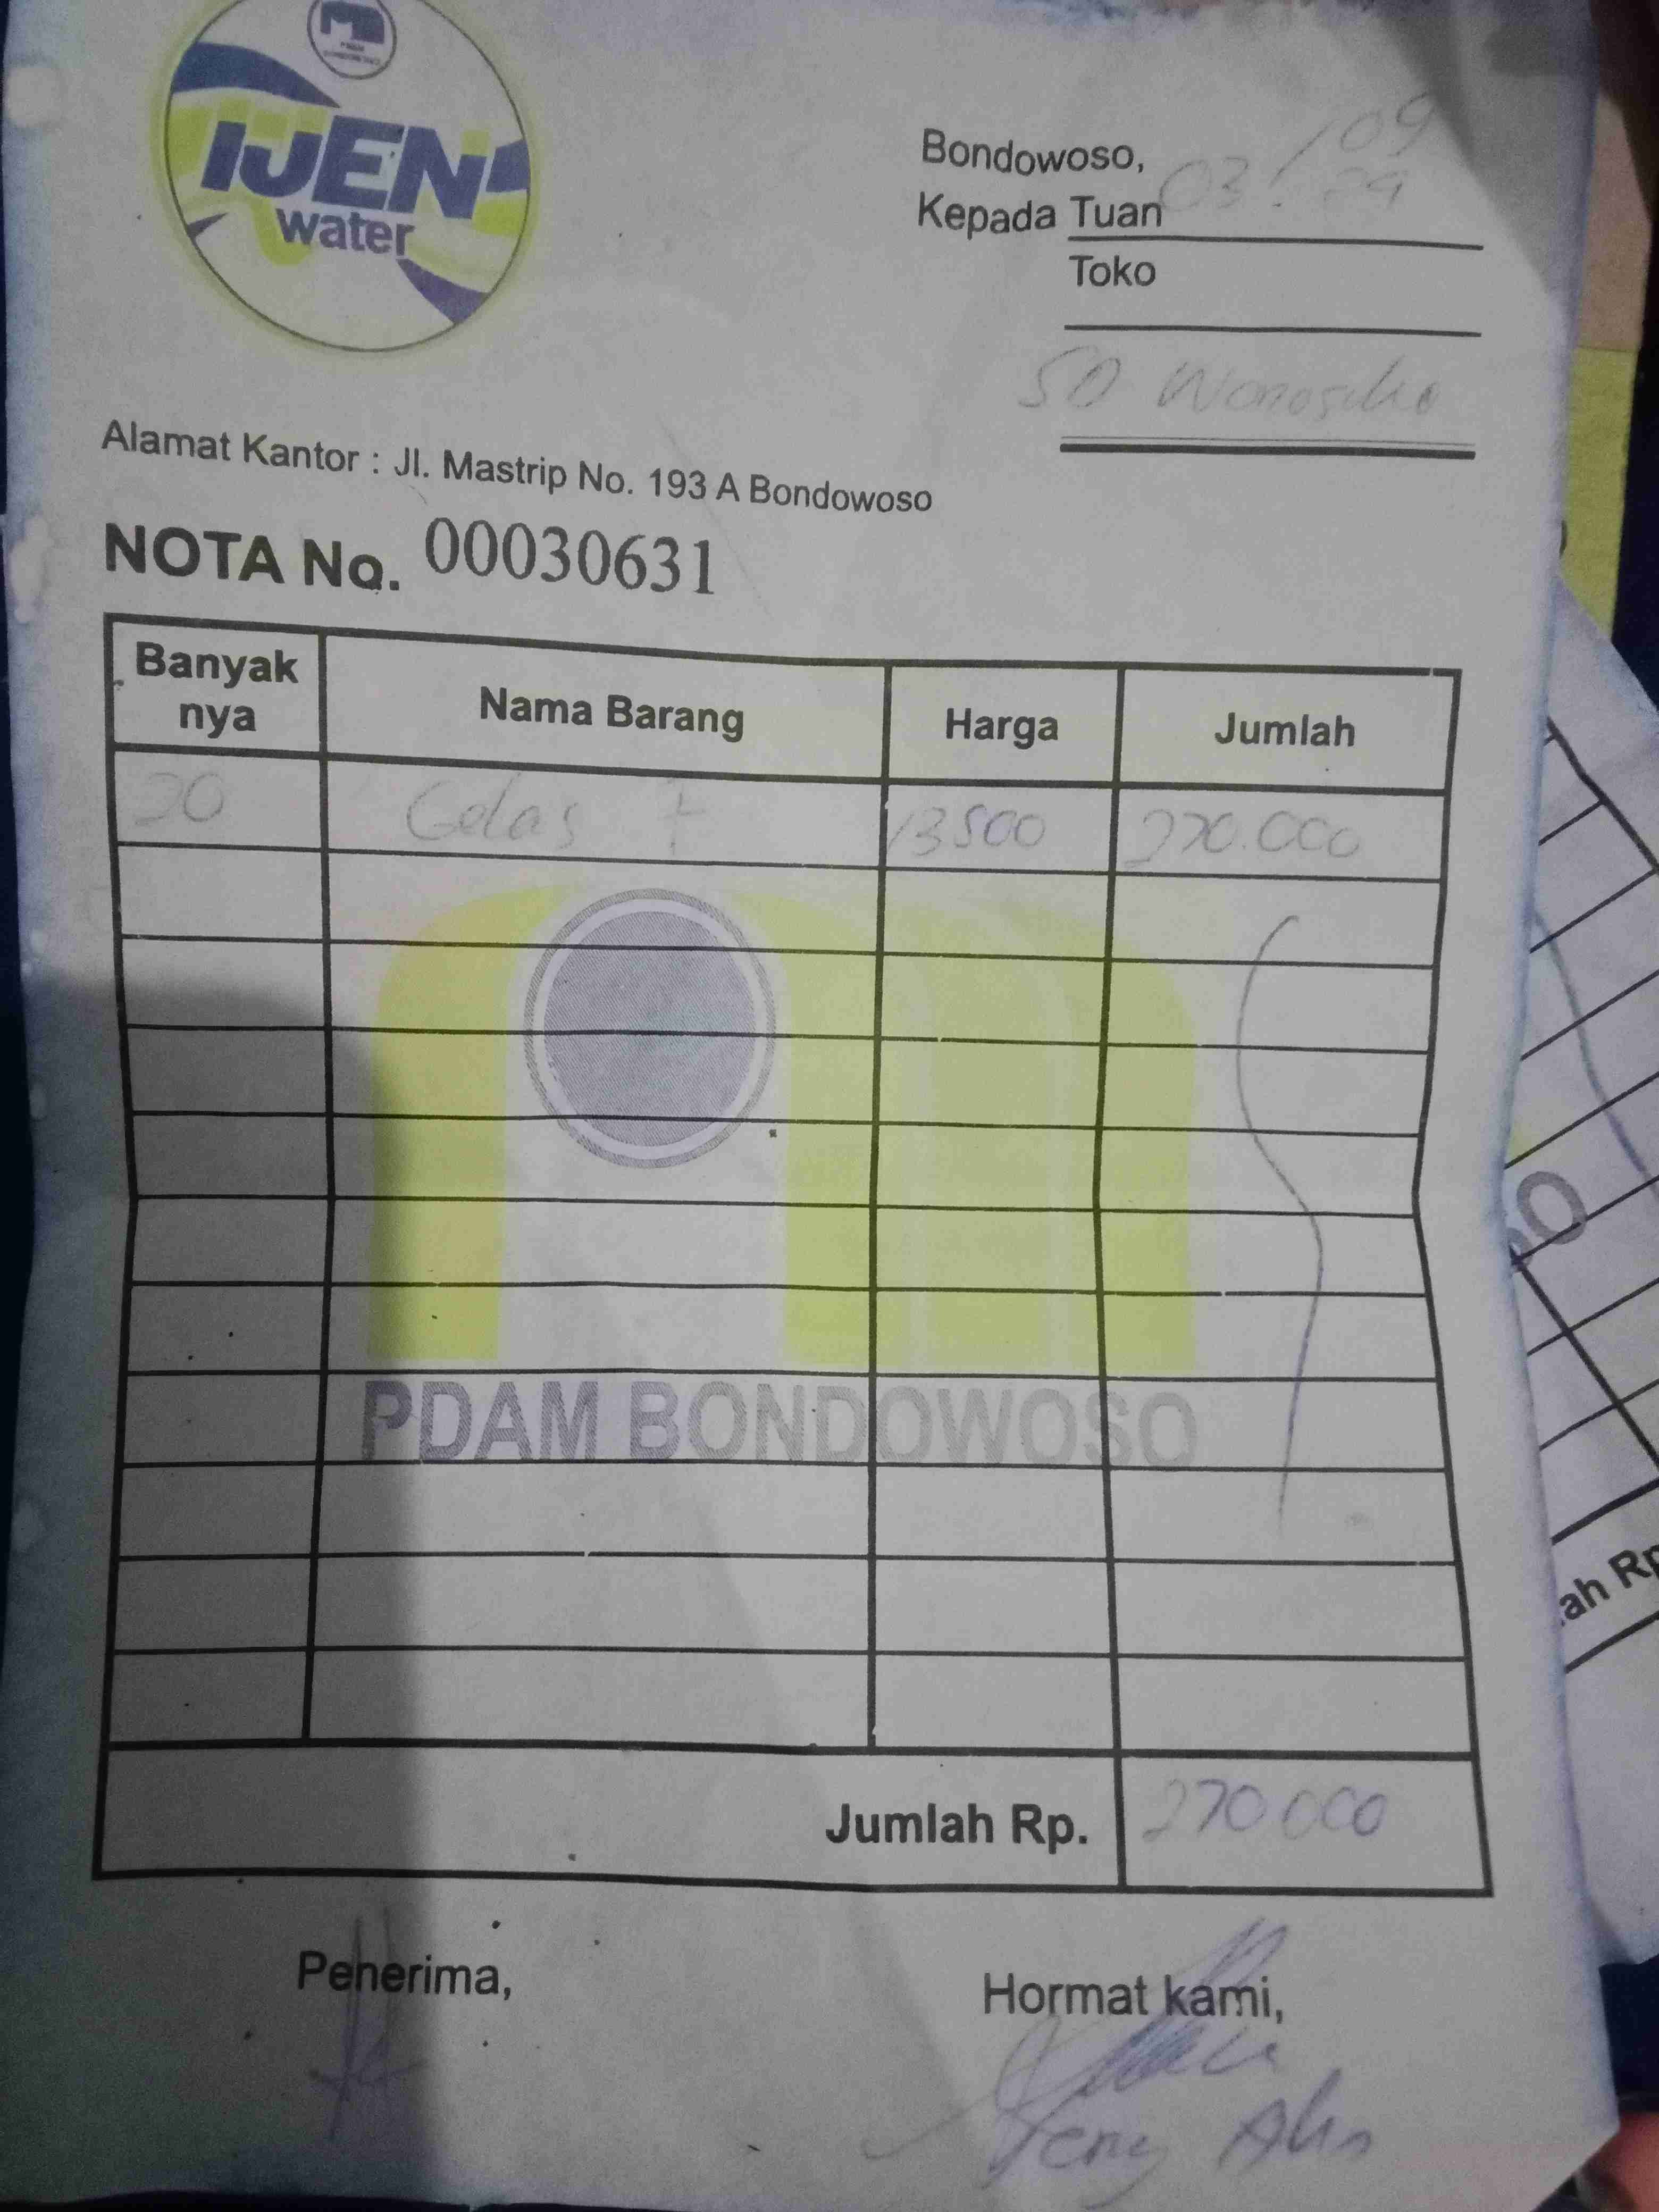 IJEN
water
Bondowoso, 03/09
Kepada Tuan 24
Toko
SO Wonosuko
Alamat Kantor : Jl. Mastrip No. 193 A Bondowoso
NOTA No. 00030631
Banyak nya Nama Barang Harga Jumlah
20 Gelas 13500 270.000
PDAM BONDOWOSO
Jumlah Rp. 270000
Penerima, Hormat kami,
ah Rp